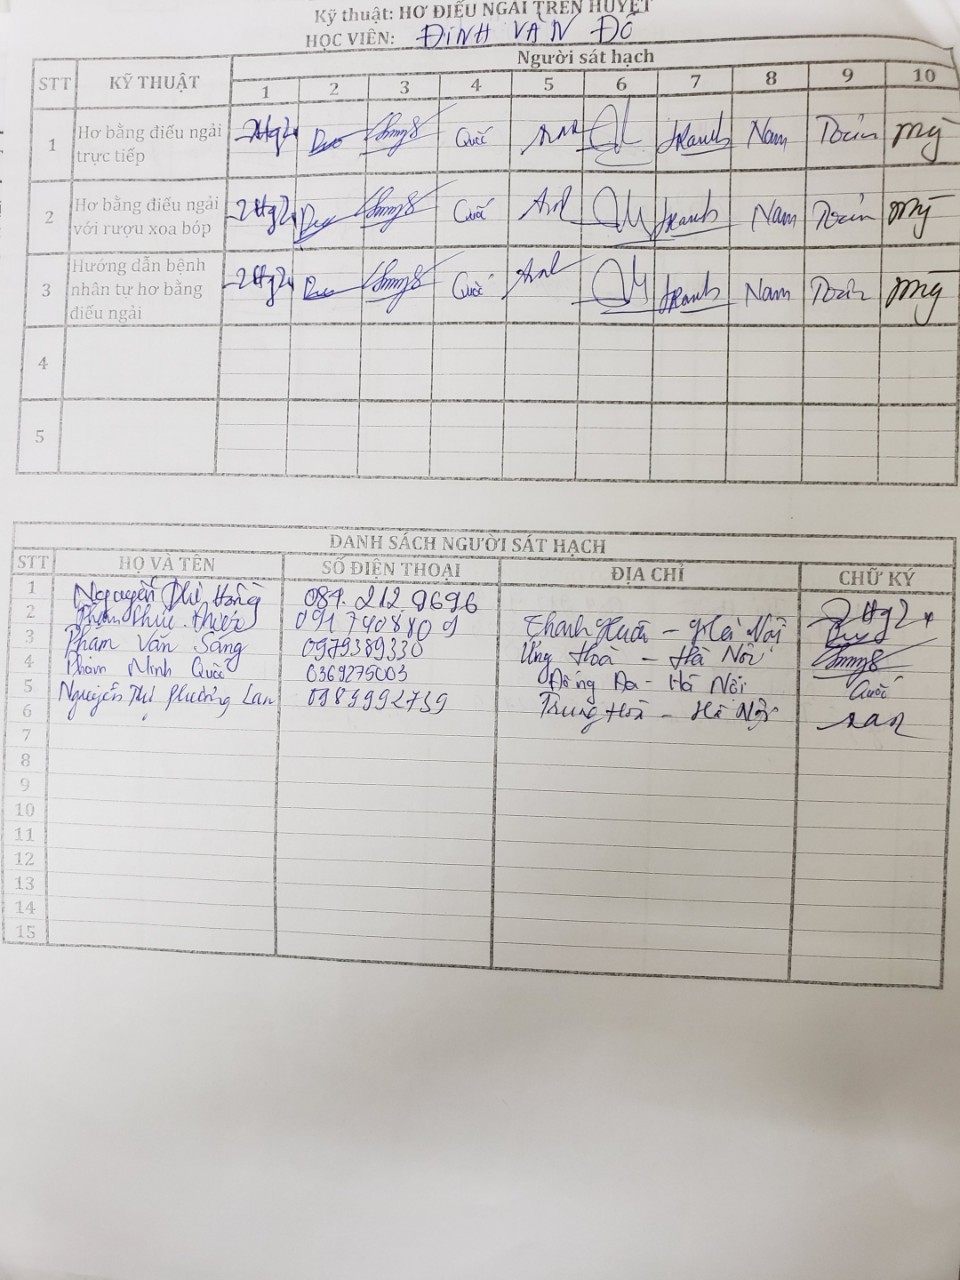 Kỹ thuật: HƠ ĐIẾU NGẢI TRÊN HUYỆT
HỌC VIÊN: ĐINH VĂN ĐÔ
STT KỸ THUẬT Người sát hạch
1 2 3 4 5 6 7 8 9 10
1 Hơ bằng điếu ngải trực tiếp Quốc Hạnh Nam Toản Mỹ
2 Hơ bằng điếu ngải với rượu xoa bóp Quốc Hạnh Nam Toản Mỹ
3 Hướng dẫn bệnh nhân tự hơ bằng điếu ngải Quốc Hạnh Nam Toản Mỹ
4
5
DANH SÁCH NGƯỜI SÁT HẠCH
STT HỌ VÀ TÊN SỐ ĐIỆN THOẠI ĐỊA CHỈ CHỮ KÝ
1 Nguyễn Thị Hồng 084.212.9696
2 Phạm 0917908809 Hà Nội
3 Phạm Văn Sáng 0979389330 Ứng Hoà - Hà Nội
4 Phạm Minh Quốc 0369275003 Đống Đa - Hà Nội Quốc
5 Nguyễn Thị Phương Lan 0989992739 Trung Hoà - Hà Nội Lan
6
7
8
9
10
11
12
13
14
15